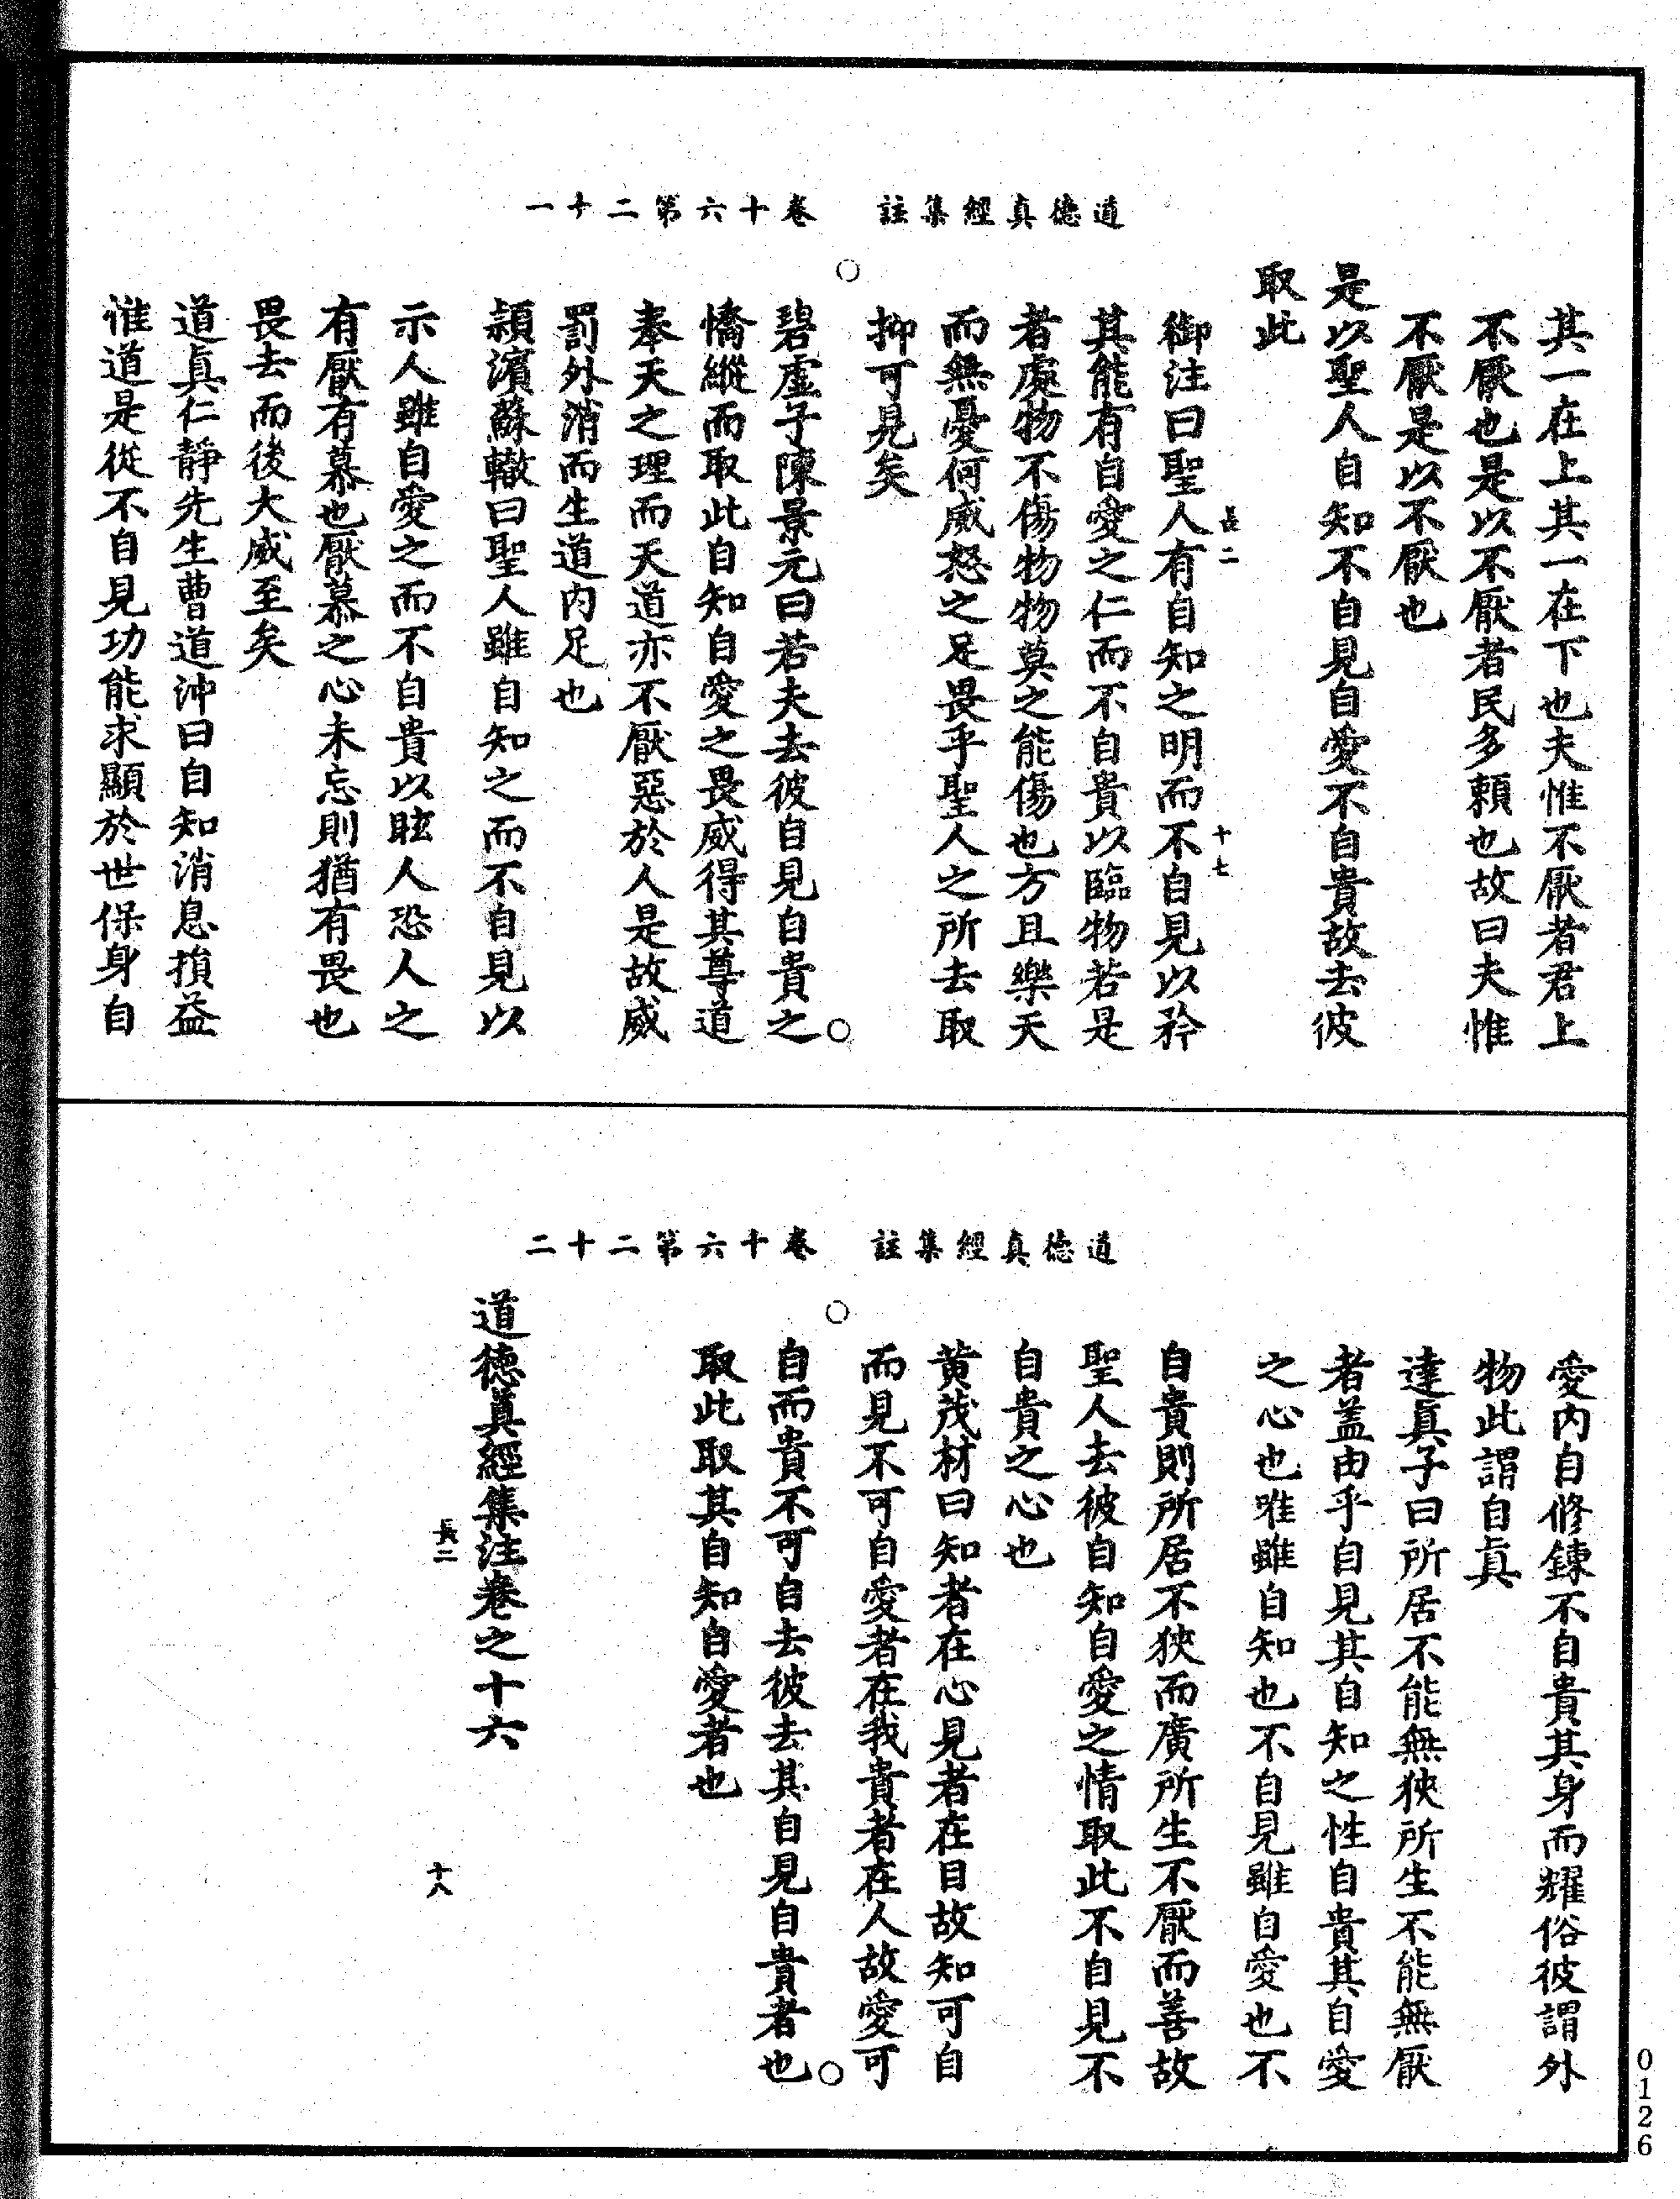 道德真經集註　卷十六第二十一
其一在上其一在下也夫惟不厭者君上
不厭也是以不厭者民多賴也故曰夫惟
不厭是以不厭也
是以聖人自知不自見自愛不自貴故去彼
取此
長二　十七
御注曰聖人有自知之明而不自見以矜
其能有自愛之仁而不自貴以臨物若是
者處物不傷物物莫之能傷也方且樂天
而無憂何威怒之足畏乎聖人之所去取
抑可見矣
碧虛子陳景元曰若夫去彼自見自貴之
憍縱而取此自知自愛之畏威得其尊道
奉天之理而天道亦不厭惡於人是故威
罰外消而生道內足也
潁濱蘇轍曰聖人雖自知之而不自見以
示人雖自愛之而不自貴以眩人恐人之
有厭有慕也厭慕之心未忘則猶有畏也
畏去而後大威至矣
道真仁靜先生曹道沖曰自知消息損益
惟道是從不自見功能求顯於世保身自
道德真經集註　卷十六第二十二
愛內自修鍊不自貴其身而耀俗彼謂外
物此謂自真
達真子曰所居不能無狹所生不能無厭
者盖由乎自見其自知之性自貴其自愛
之心也唯雖自知也不自見雖自愛也不
自貴則所居不狹而廣所生不厭而善故
聖人去彼自知自愛之情取此不自見不
自貴之心也
黄茂材曰知者在心見者在目故知可自
而見不可自愛者在我貴者在人故愛可
自而貴不可自去彼去其自見自貴者也
取此取其自知自愛者也
道德真經集注卷之十六
長二　十八
0126